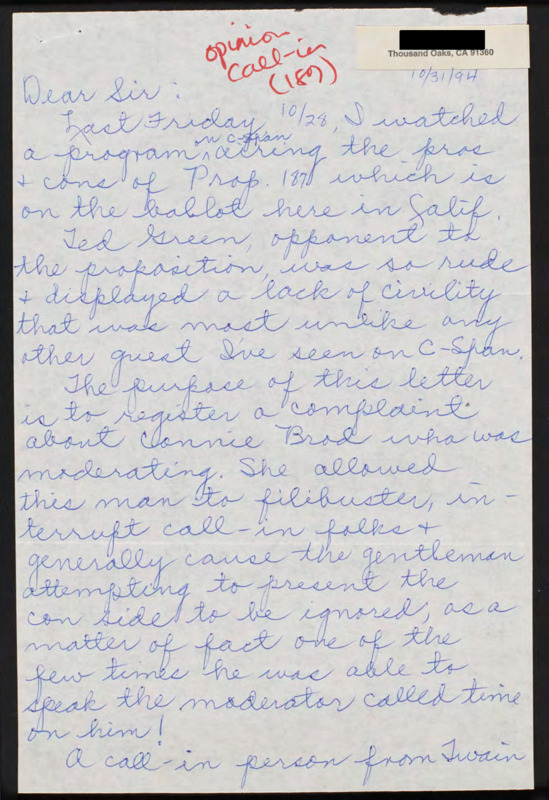 opinion
call-in
(187)
Thousand Oaks, CA 91360
10/31/94
Dear Sir:
Last Friday, 10/28, I watched
a program on C-Span airing the pros
+ cons of Prop. 187 which is
on the ballot here in Calif.
Ted Green, opponent to
the proposition, was so rude
+ displayed a lack of civility
that was most unlike any
other guest I've seen on C-Span.
The purpose of this letter
is to register a complaint
about Connie Brod who was
moderating. She allowed
this man to filibuster, in-
terrupt call-in folks +
generally cause the gentleman
attempting to present the
con side to be ignored; as a
matter of fact one of the
few times he was able to
speak the moderator called time
on him!
A call-in person from Twain